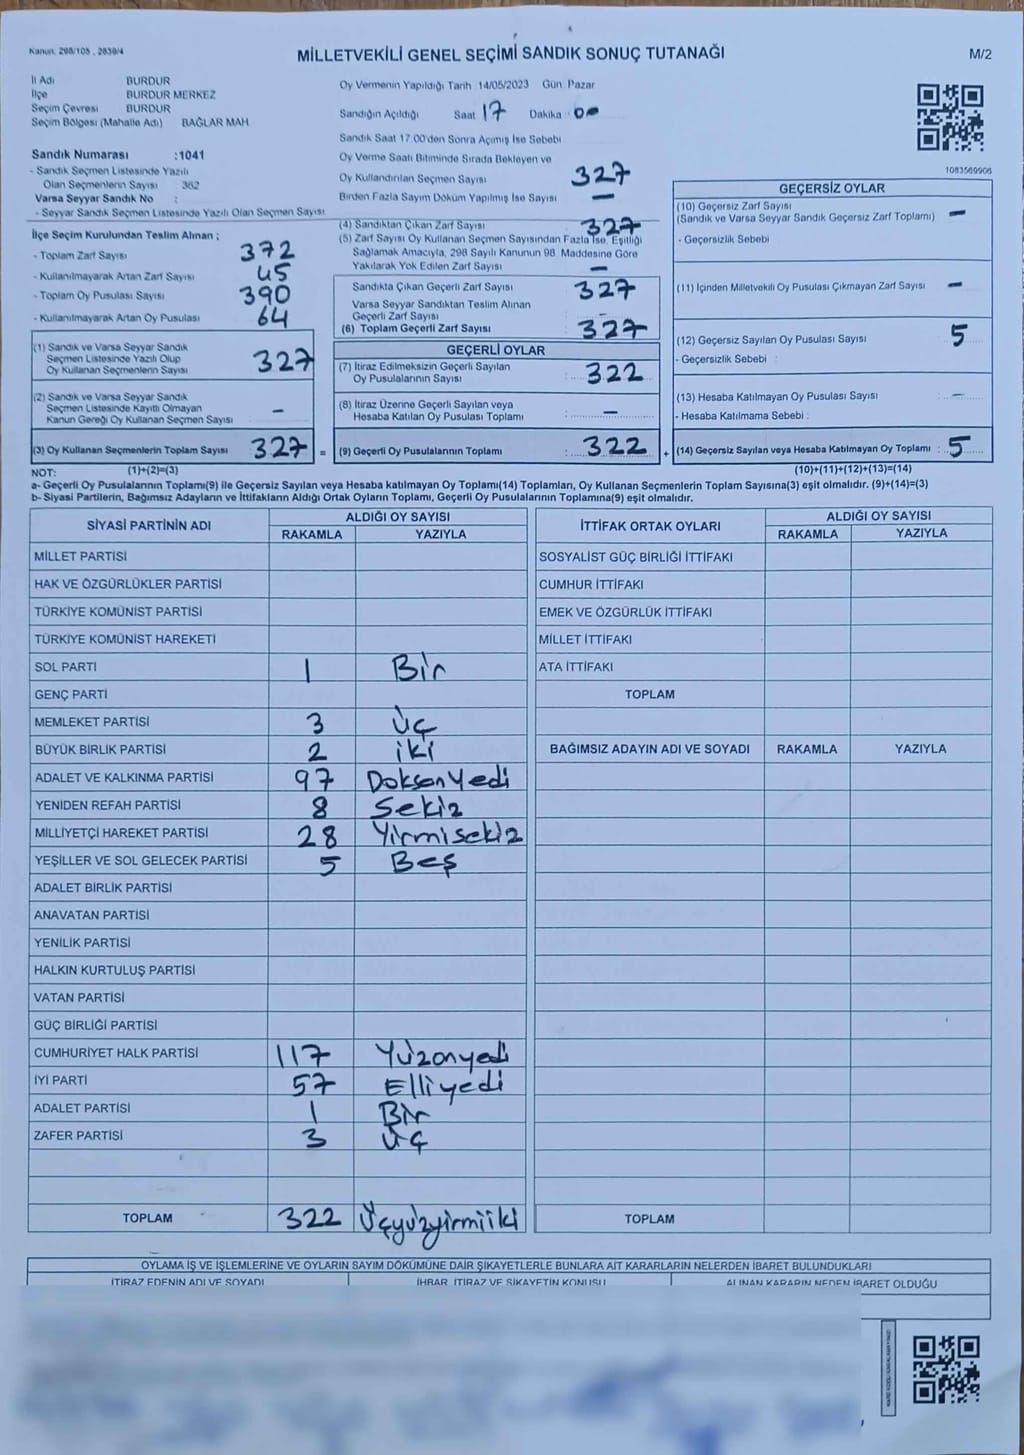 Kanun, 298/105 , 2839/4
MİLLETVEKİLİ GENEL SEÇİMİ SANDIK SONUÇ TUTANAĞI
M/2
İl Adı BURDUR
İlçe BURDUR MERKEZ
Seçim Çevresi BURDUR
Seçim Bölgesi (Mahalle Adı) BAĞLAR MAH
Sandık Numarası :1041
- Sandık Seçmen Listesinde Yazılı
Olan Seçmenlerin Sayısı 362
Varsa Seyyar Sandık No :
- Seyyar Sandık Seçmen Listesinde Yazılı Olan Seçmen Sayısı
İlçe Seçim Kurulundan Teslim Alınan ;
- Toplam Zarf Sayısı 372
- Kullanılmayarak Artan Zarf Sayısı 45
- Toplam Oy Pusulası Sayısı 390
- Kullanılmayarak Artan Oy Pusulası 64
(1) Sandık ve Varsa Seyyar Sandık
Seçmen Listesinde Yazılı Olup
Oy Kullanan Seçmenlerin Sayısı 327
(2) Sandık ve Varsa Seyyar Sandık
Seçmen Listesinde Kayıtlı Olmayan
Kanun Gereği Oy Kullanan Seçmen Sayısı –
(3) Oy Kullanan Seçmenlerin Toplam Sayısı 327 =
Oy Vermenin Yapıldığı Tarih 14/05/2023 Gün Pazar
Sandığın Açıldığı Saat 17 Dakika : 00
Sandık Saat 17.00'den Sonra Açımış İse Sebebi
Oy Verme Saati Bitiminde Sırada Bekleyen ve
Oy Kullandırılan Seçmen Sayısı 327
Birden Fazla Sayım Döküm Yapılmış İse Sayısı –
(4) Sandıktan Çıkan Zarf Sayısı 327
(5) Zarf Sayısı Oy Kullanan Seçmen Sayısından Fazla İse, Eşitliği
Sağlamak Amacıyla, 298 Sayılı Kanunun 98. Maddesine Göre
Yakılarak Yok Edilen Zarf Sayısı –
Sandıkta Çıkan Geçerli Zarf Sayısı 327
Varsa Seyyar Sandıktan Teslim Alınan
Geçerli Zarf Sayısı :
(6) Toplam Geçerli Zarf Sayısı 327
GEÇERLİ OYLAR
(7) İtiraz Edilmeksizin Geçerli Sayılan
Oy Pusulalarının Sayısı : 322
(8) İtiraz Üzerine Geçerli Sayılan veya
Hesaba Katılan Oy Pusulası Toplamı : –
(9) Geçerli Oy Pusulalarının Toplamı : 322 +
1083569906
GEÇERSİZ OYLAR
(10) Geçersiz Zarf Sayısı
(Sandık ve Varsa Seyyar Sandık Geçersiz Zarf Toplamı) –
- Geçersizlik Sebebi
(11) İçinden Milletvekili Oy Pusulası Çıkmayan Zarf Sayısı –
(12) Geçersiz Sayılan Oy Pusulası Sayısı 5
- Geçersizlik Sebebi :
(13) Hesaba Katılmayan Oy Pusulası Sayısı –
- Hesaba Katılmama Sebebi :
(14) Geçersiz Sayılan veya Hesaba Katılmayan Oy Toplamı : 5
NOT: (1)+(2)=(3) (10)+(11)+(12)+(13)=(14)
a- Geçerli Oy Pusulalarının Toplamı(9) ile Geçersiz Sayılan veya Hesaba katılmayan Oy Toplamı(14) Toplamları, Oy Kullanan Seçmenlerin Toplam Sayısına(3) eşit olmalıdır. (9)+(14)=(3)
b- Siyasi Partilerin, Bağımsız Adayların ve İttifakların Aldığı Ortak Oyların Toplamı, Geçerli Oy Pusulalarının Toplamına(9) eşit olmalıdır.
SİYASİ PARTİNİN ADI ALDIĞI OY SAYISI
RAKAMLA YAZIYLA
MİLLET PARTİSİ
HAK VE ÖZGÜRLÜKLER PARTİSİ
TÜRKİYE KOMÜNİST PARTİSİ
TÜRKİYE KOMÜNİST HAREKETİ
SOL PARTİ 1 Bir
GENÇ PARTİ
MEMLEKET PARTİSİ 3 Üç
BÜYÜK BİRLİK PARTİSİ 2 iki
ADALET VE KALKINMA PARTİSİ 97 Doksanyedi
YENİDEN REFAH PARTİSİ 8 Sekiz
MİLLİYETÇİ HAREKET PARTİSİ 28 Yirmisekiz
YEŞİLLER VE SOL GELECEK PARTİSİ 5 Beş
ADALET BİRLİK PARTİSİ
ANAVATAN PARTİSİ
YENİLİK PARTİSİ
HALKIN KURTULUŞ PARTİSİ
VATAN PARTİSİ
GÜÇ BİRLİĞİ PARTİSİ
CUMHURİYET HALK PARTİSİ 117 Yüzonyedi
İYİ PARTİ 57 Elliyedi
ADALET PARTİSİ 1 Bir
ZAFER PARTİSİ 3 Üç
TOPLAM 322 Üçyüzyirmiiki
İTTİFAK ORTAK OYLARI ALDIĞI OY SAYISI
RAKAMLA YAZIYLA
SOSYALİST GÜÇ BİRLİĞİ İTTİFAKI
CUMHUR İTTİFAKI
EMEK VE ÖZGÜRLÜK İTTİFAKI
MİLLET İTTİFAKI
ATA İTTİFAKI
TOPLAM
BAĞIMSIZ ADAYIN ADI VE SOYADI RAKAMLA YAZIYLA
TOPLAM
OYLAMA İŞ VE İŞLEMLERİNE VE OYLARIN SAYIM DÖKÜMÜNE DAİR ŞİKAYETLERLE BUNLARA AİT KARARLARIN NELERDEN İBARET BULUNDUKLARI
İTİRAZ EDENİN ADI VE SOYADI İHBAR, İTİRAZ VE ŞİKAYETİN KONUSU ALINAN KARARIN NEDEN İBARET OLDUĞU